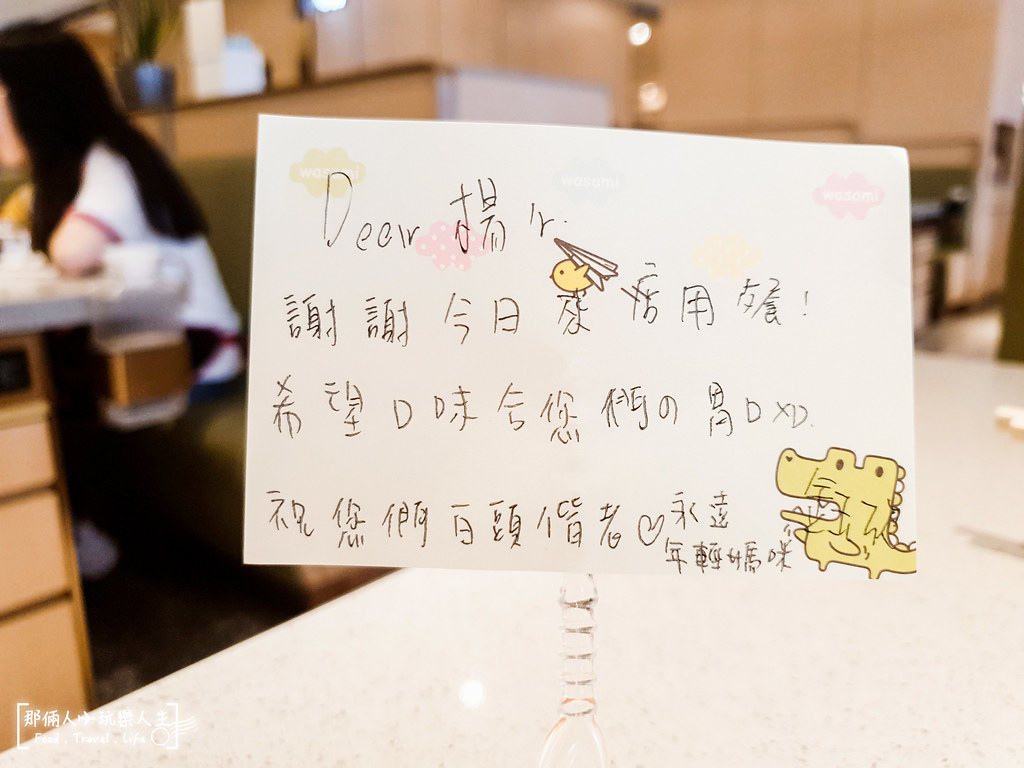 wasami wasami wasami
Dear 揚 'r.
謝謝今日來店用餐!
希望口味合您們の胃口XD.
祝您們百頭偕老♡永遠
年輕媽咪
那倆人小玩樂人生
Food . Travel . Life